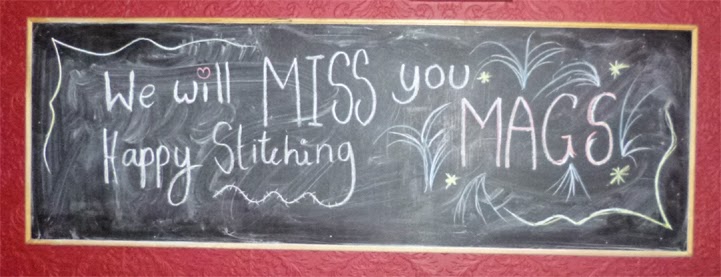 We will MISS you MAGS
Happy Stitching